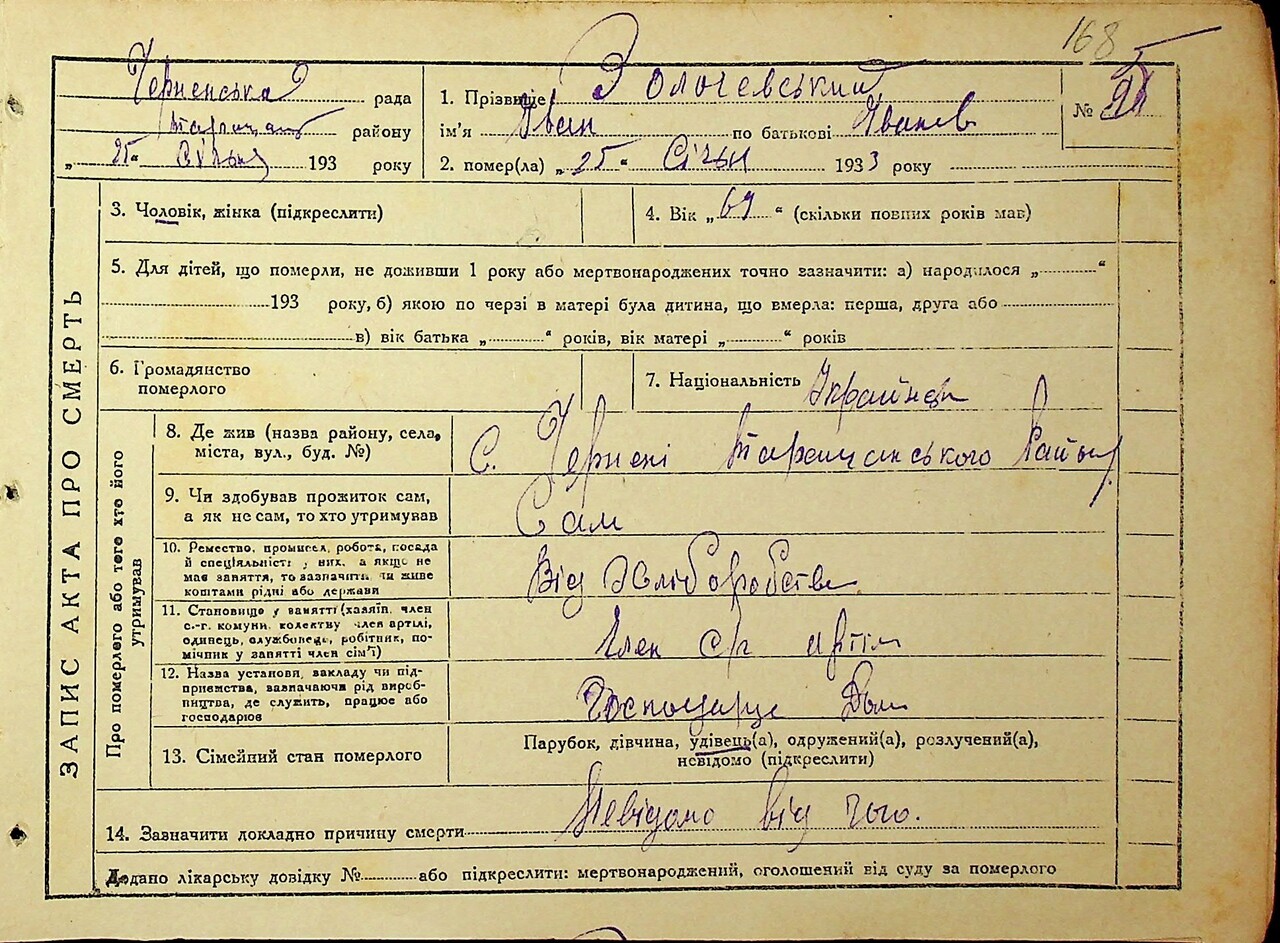 168
Черненська рада
району
„ 25 “ Січня 193 року
1. Прізвище Золочевський
ім'я Іван по батькові Іванов
2. помер(ла) „ 25 “ Січня 1933 року
№
ЗАПИС АКТА ПРО СМЕРТЬ
3. Чоловік, жінка (підкреслити)
4. Вік „ 69 “ (скільки повних років мав)
5. Для дітей, що померли, не доживши 1 року або мертвонароджених точно зазначити: а) народилося „ “
193 року, б) якою по черзі в матері була дитина, що вмерла: перша, друга або
в) вік батька „ “ років, вік матері „ “ років
6. Громадянство померлого
7. Національність Українец
Про померлого або того хто його утримував
8. Де жив (назва району, села,
міста, вул., буд. №)
С. Чернені Таращанського Району
9. Чи здобував прожиток сам,
а як не сам, то хто утримував
Сам
10. Ремество, промисел, робота, посада
й спеціяльність у них, а якщо не
має заняття, то зазначити, чи живе
коштами рідні або держави
Від Хліборобства
11. Становище у занятті (хазяїн, член
с.-г. комуни, колективу член артілі,
одинець, службовець, робітник, по-
мічник у занятті член сім'ї)
Член с/г артіл
12. Назва установи, закладу чи під-
приємства, зазначаючи рід вироб-
ництва, де служить, працює або
господарює
13. Сімейний стан померлого
Парубок, дівчина, удівець(а), одружений(а), розлучений(а),
невідомо (підкреслити)
14. Зазначити докладно причину смерти Невідомо від чого.
Додано лікарську довідку № або підкреслити: мертвонароджений, оголошений від суду за померлого